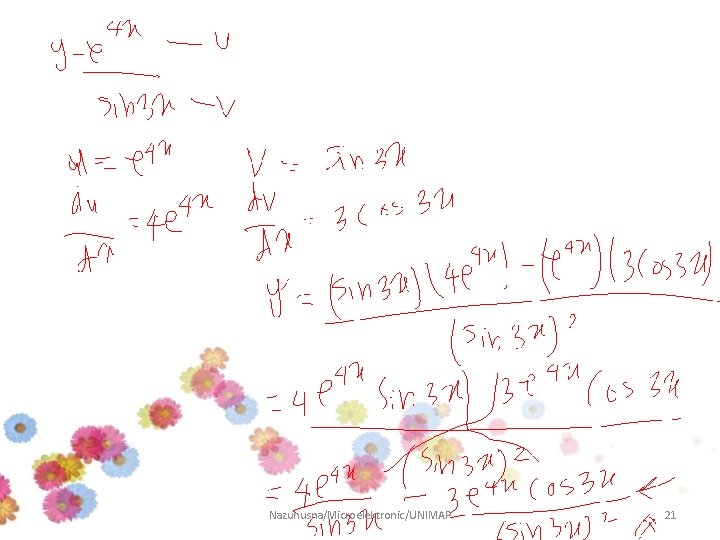 y = e^{4x} — u
sin 3x — v
u = e^{4x} v = sin 3x
du/dx = 4e^{4x} dv/dx = 3 cos 3x
y' = (sin 3x)(4e^{4x}) - (e^{4x})(3 cos 3x)
(sin 3x)^2
= 4e^{4x} sin 3x 3e^{4x} cos 3x
(sin 3x)^2
= 4e^{4x} - 3e^{4x} cos 3x ←
sin 3x (sin 3x)^2
Nazuhusna/Microelektronic/UNIMAP 21